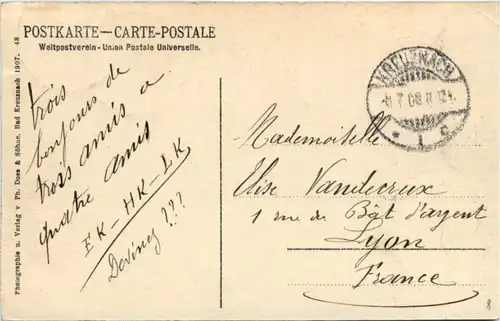 POSTKARTE — CARTE-POSTALE
Weltpostverein - Union Postale Universelle.
Photographie u. Verlag v. Ph. Doss & Söhne, Bad Kreuznach 1907. 48
trois
bonjours de
trois amis a
quatre amis
EK - HK - LK
Devinez ???
KREUZNACH
7 08
* 1 c
Mademoiselle
Elise Vandecrux
1 rue du Bât d'argent
Lyon
France